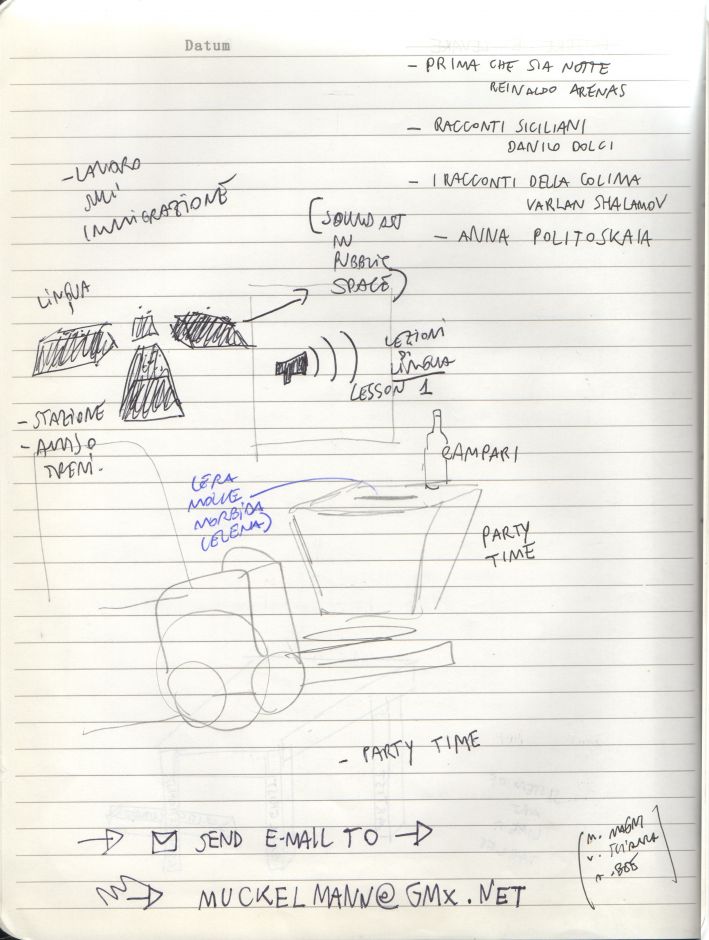 Datum
- PRIMA CHE SIA NOTTE
REINALDO ARENAS
- RACCONTI SICILIANI
DANILO DOLCI
- I RACCONTI DELLA COLIMA
VARLAN SHALAMOV
- ANNA POLITOSKAIA
- LAVORO
SULL'
IMMIGRAZIONE
(SOUND ART
IN
PUBBLIC
SPACE)
LINGUA
LEZIONI
DI
LINGUA
LESSON 1
- STAZIONE
TRENI.
CAMPARI
CERA
MOLLE
MORBIDA
PARTY
TIME
- PARTY TIME
SEND E-MAIL TO
MUCKELMANN@GMX.NET